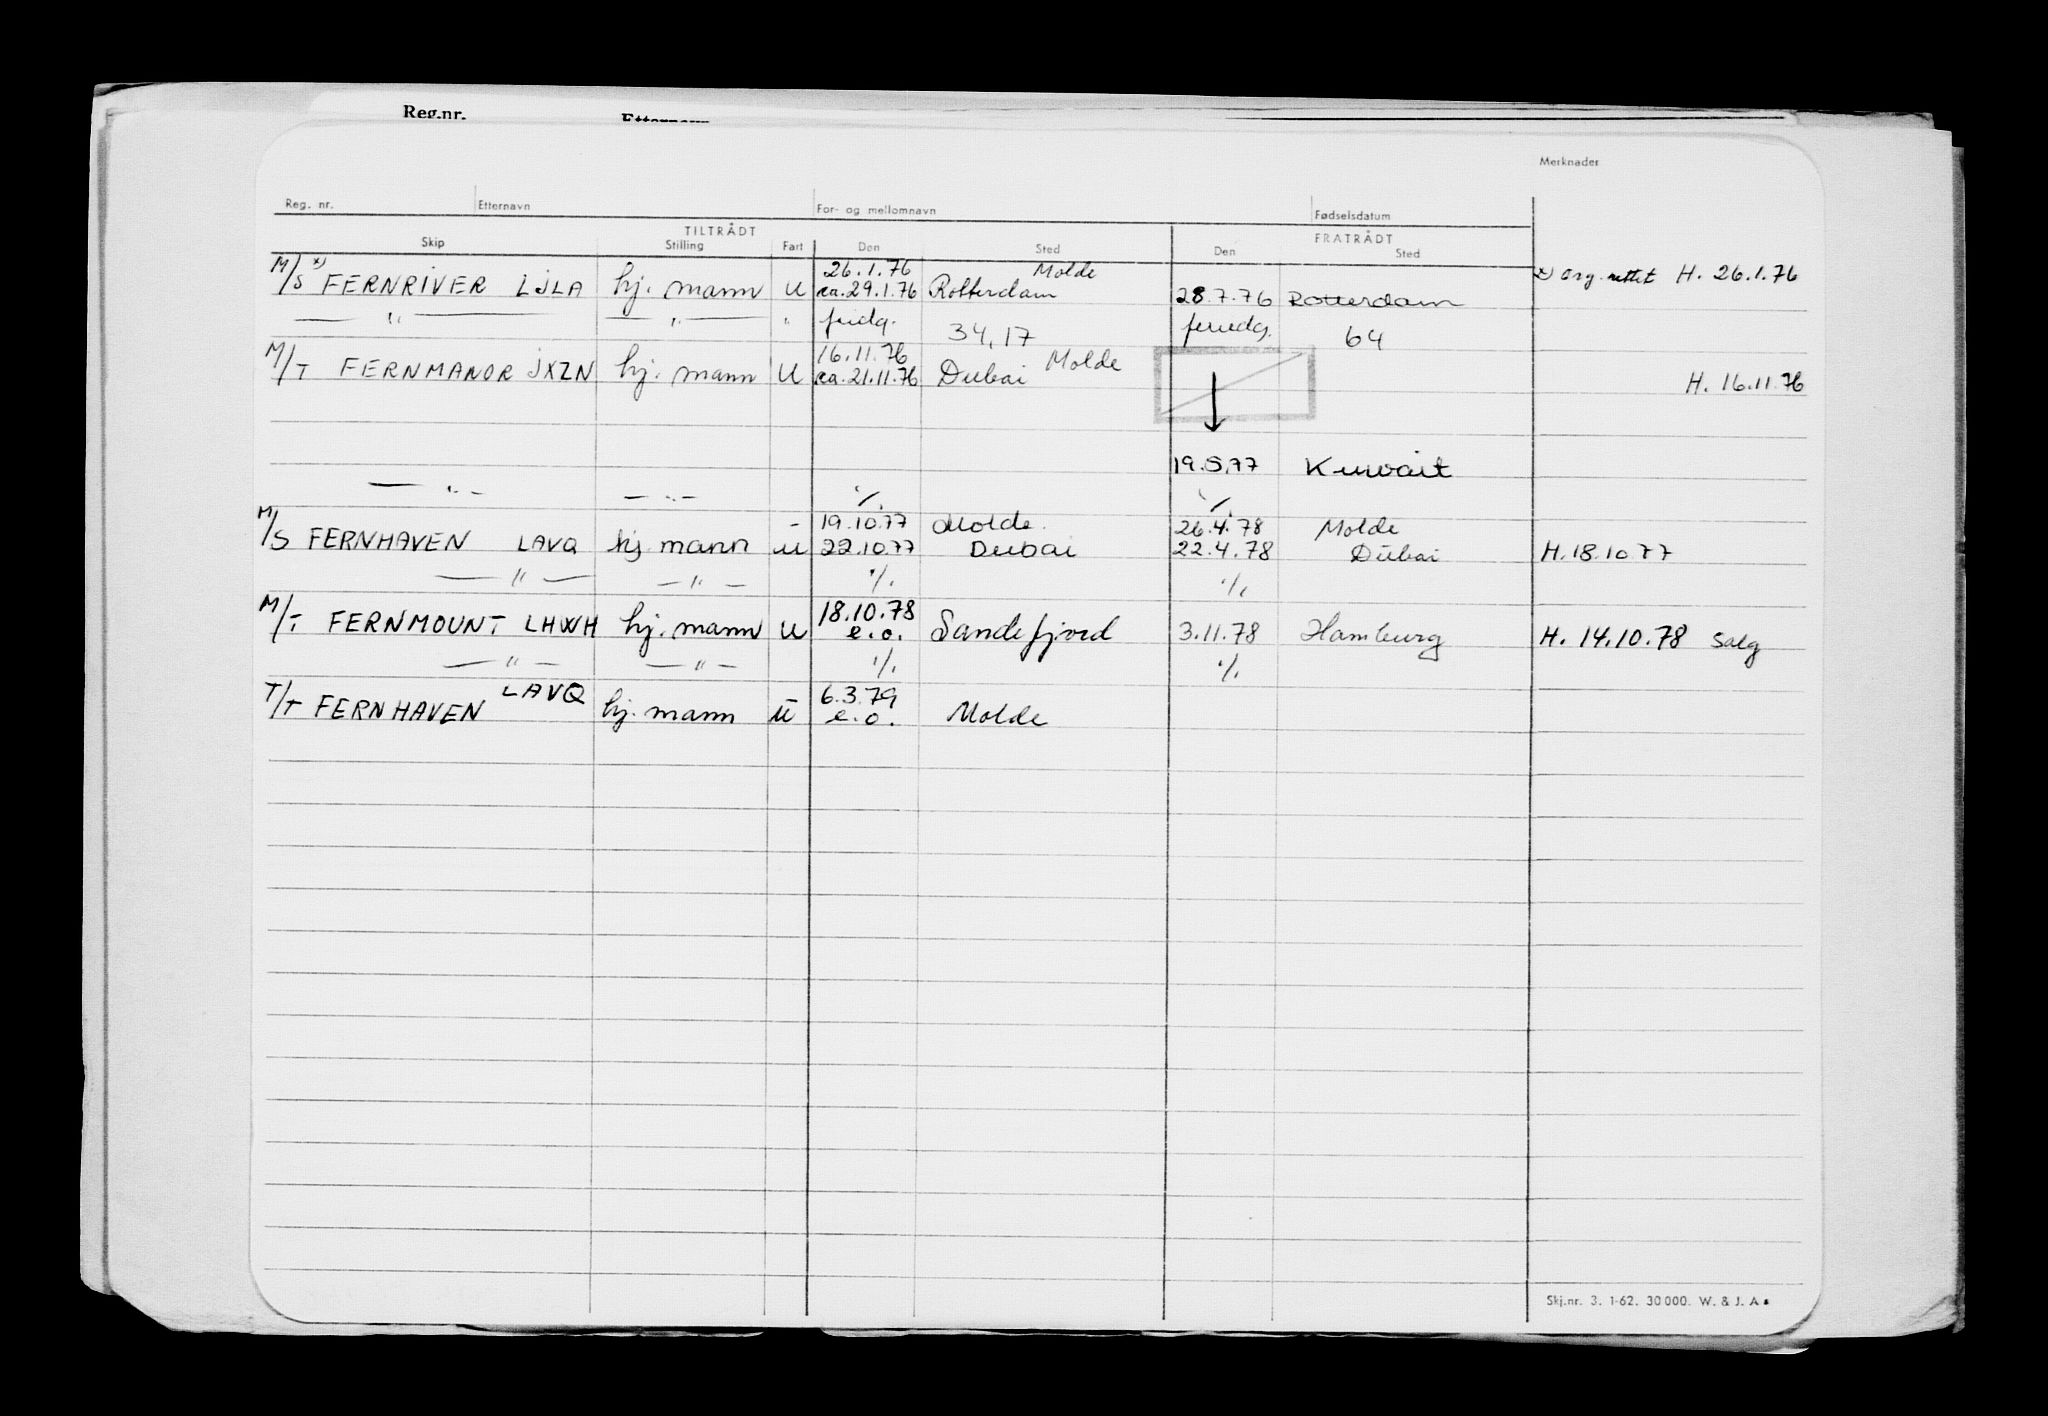 Reg.nr. Etternavn
Merknader
Reg. nr. Etternavn For- og mellomnavn Fødselsdatum
TILTRÅDT FRATRÅDT
Skip Stilling Fart Den Sted Den Sted
26.1.76 Molde
M/S x) FERNRIVER LJLA hj. mann U ca. 29.1.76 Rotterdam 28.7.76 Rotterdam x) org. rettet H. 26.1.76
— " — — " — " fridg. 34,17 feriedg. 64
16.11.76 Molde
M/T FERNMANOR JXZN hj. mann U ca. 21.11.76 Dubai H. 16.11.76
19.5.77 Kuwait
— " — — " — ./. ./.
- 19.10.77 Molde 26.4.78 Molde
M/S FERNHAVEN LAVQ hj. mann U 22.10.77 Dubai 22.4.78 Dubai H.18.10.77
— " — — " — ./. ./.
18.10.78
M/T FERNMOUNT LHWH hj. mann U e.o. Sandefjord 3.11.78 Hamburg H. 14.10.78 salg
— " — — " — ./. ./.
LAVQ 6.3.79
T/T FERNHAVEN hj. mann U e.o. Molde
Skj.nr. 3. 1-62. 30000. W. & J. A.